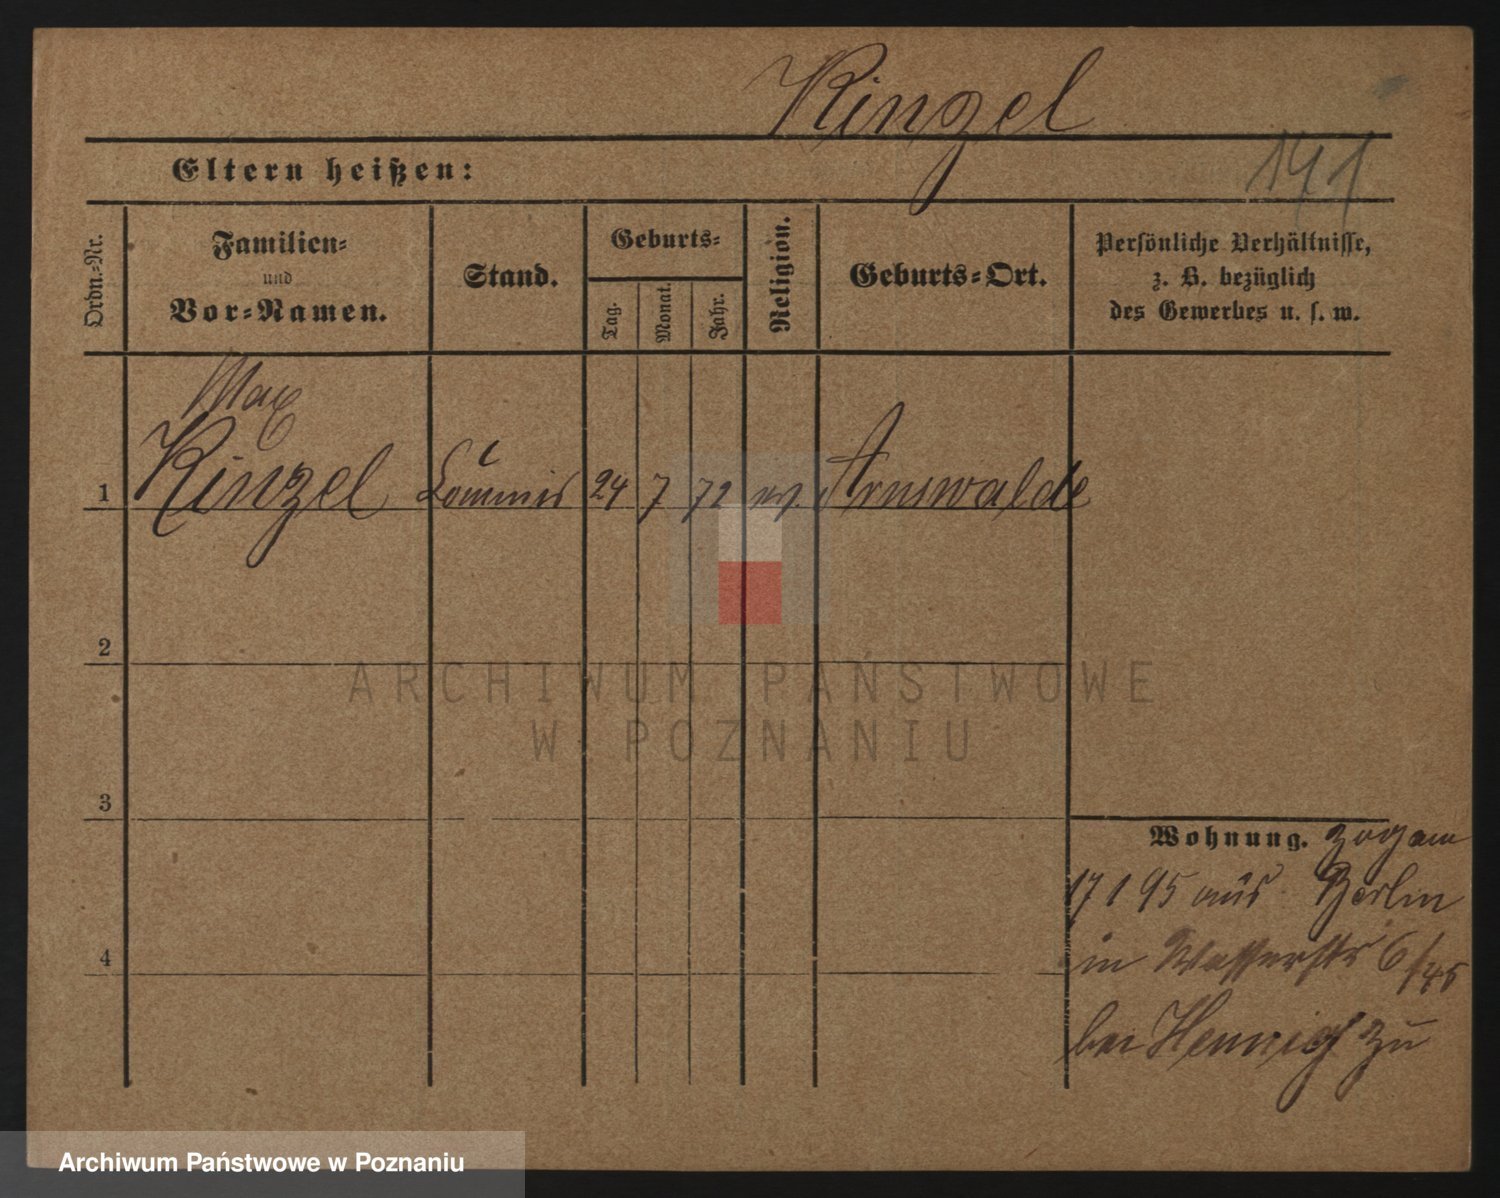 Kinzel
Eltern heißen:
141
Ordn.-Nr.
Familien-
und
Vor-Namen.
Stand.
Geburts-
Tag.
Monat.
Jahr.
Religion.
Geburts-Ort.
Persönliche Verhältnisse,
z. B. bezüglich
des Gewerbes u. s. w.
Max
1 Kinzel Commis 24 7 72 ev. Arnswalde
2
ARCHIWUM PAŃSTWOWE
W POZNANIU
3
Wohnung. zog am
17 1 95 aus Berlin
4
in Wasserstr 6/45
bei Hennig zu
Archiwum Państwowe w Poznaniu